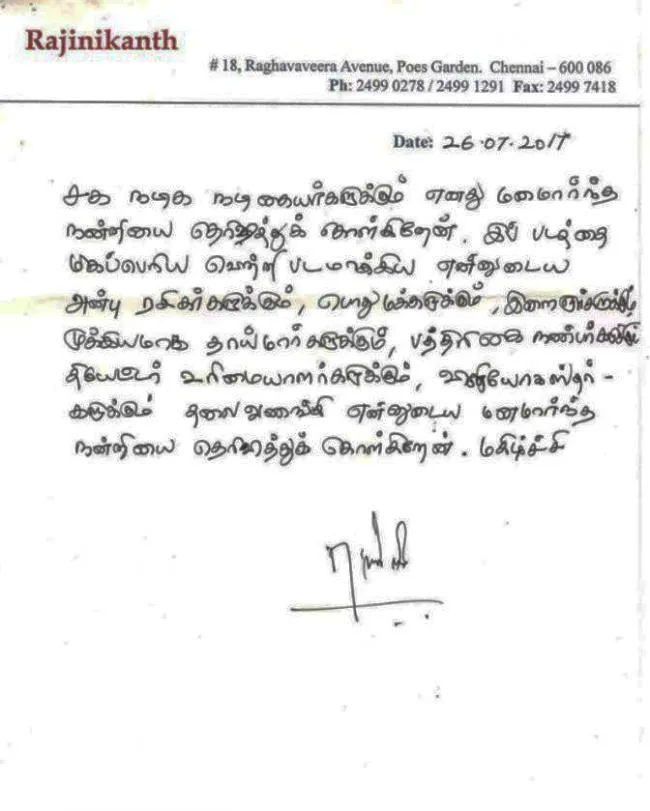 Rajinikanth
# 18, Raghavaveera Avenue, Poes Garden. Chennai – 600 086
Ph: 2499 0278 / 2499 1291 Fax: 2499 7418
Date: 26.07.2017
சக நடிக நடிகையர்களுக்கும் எனது மனமார்ந்த
நன்றியை தெரிவித்துக் கொள்கிறேன். இப் படத்தை
மிகப்பெரிய வெற்றி படமாக்கிய என்னுடைய
அன்பு ரசிகர்களுக்கும், பொது மக்களுக்கும், இளைஞர்களுக்கும்,
முக்கியமாக தாய்மார்களுக்கும், பத்திரிகை நண்பர்களுக்கும்
தியேட்டர் உரிமையாளர்களுக்கும், விநியோகஸ்தர் -
களுக்கும் தலை வணங்கி என்னுடைய மனமார்ந்த
நன்றியை தெரிவித்துக் கொள்கிறேன். மகிழ்ச்சி